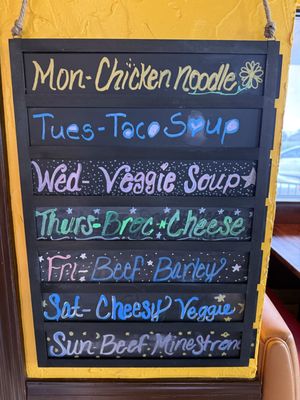 Mon-Chicken noodle
Tues-Taco Soup
Wed-Veggie Soup
Thurs-Broc*Cheese
Fri-Beef Barley
Sat-Cheesy Veggie
Sun-Beef Minestrone